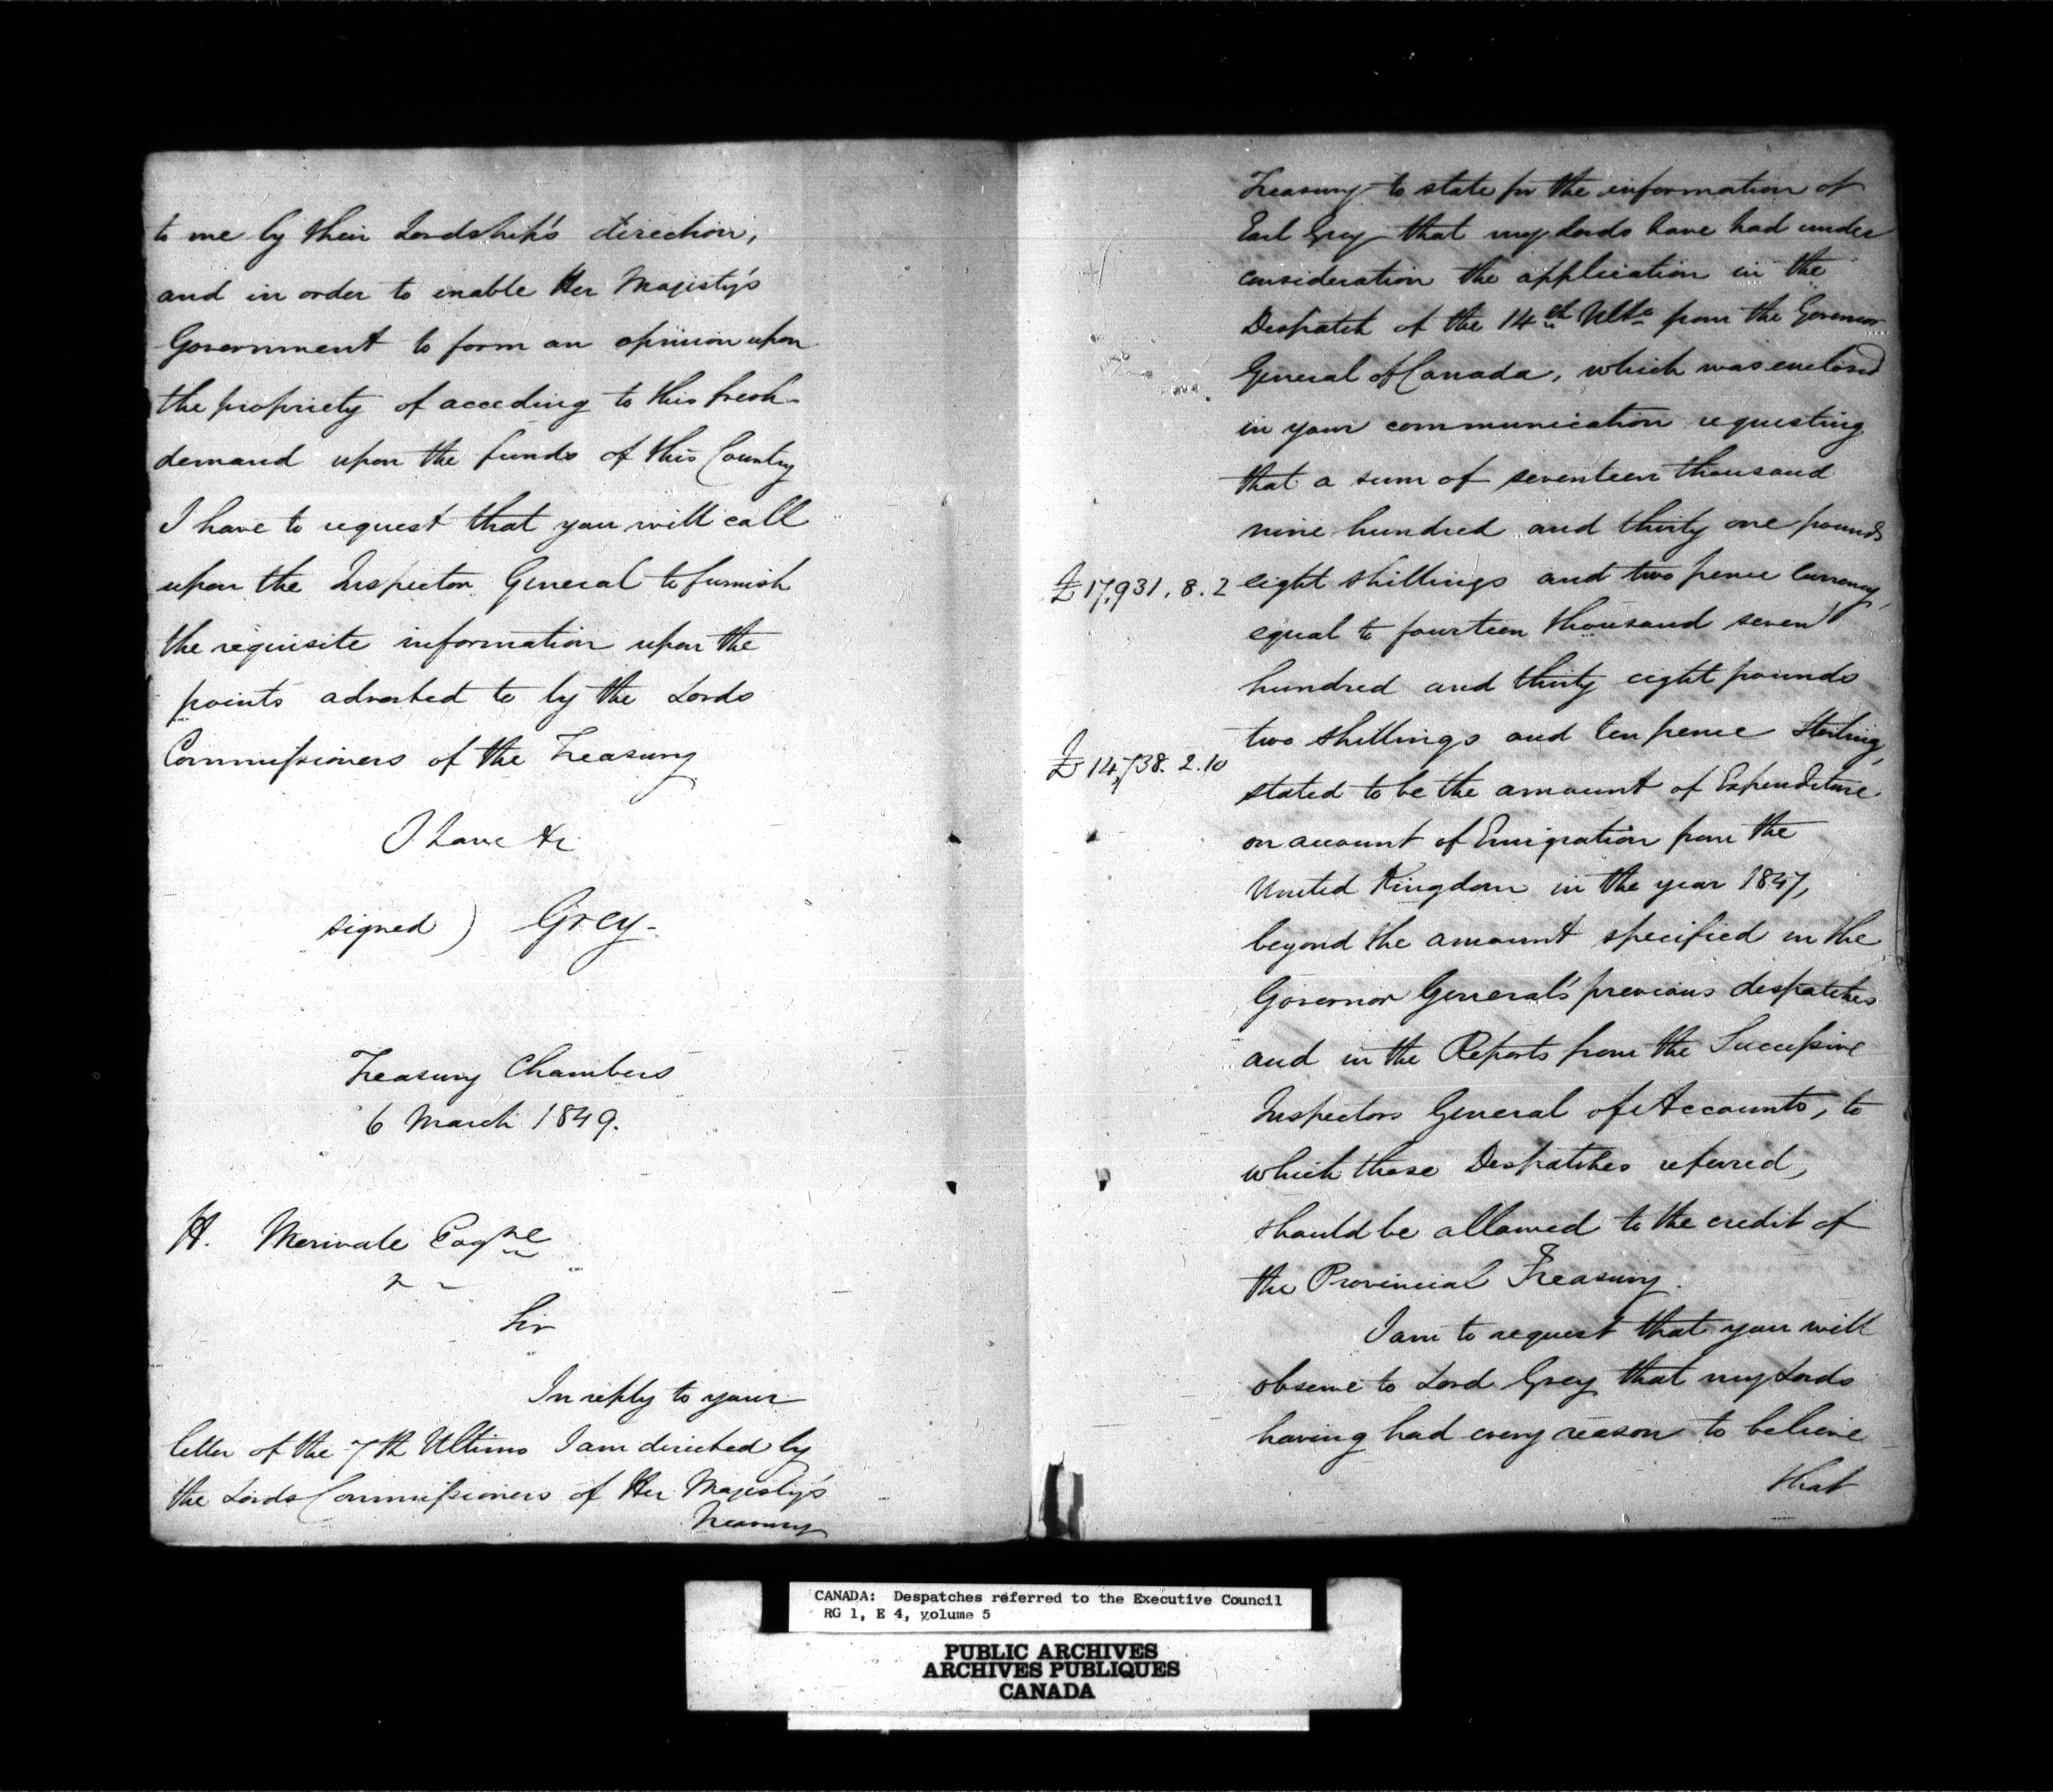 to me by their Lordship's direction,
and in order to enable Her Majesty's
Government to form an opinion upon
the propriety of acceding to this fresh
demand upon the funds of this Country
I have to request that you will call
upon the Inspector General to furnish
the requisite information upon the
points adverted to by the Lords
Commissioners of the Treasury
I have &c
signed ) Grey-
Treasury Chambers
6 March 1849.
H. Merivale Esqre
Sir
In reply to your
letter of the 7th Ultimo I am directed by
the Lords Commissioners of Her Majesty's
Treasury
Treasury to state for the information of
Earl Grey that my Lords have had under
consideration the application in the
Despatch of the 14th Ulto from the Governor
General of Canada, which was enclosed
in your communication requesting
that a sum of seventeen thousand
nine hundred and thirty one pounds
£17,931. 8. 2 eight shillings and two pence Currency,
equal to fourteen thousand seven
hundred and thirty eight pounds
two shillings and ten pence Sterling,
£14,738. 2. 10
stated to be the amount of Expenditure
on account of Emigration from the
United Kingdom in the year 1847,
beyond the amount specified in the
Governor General's previous despatches
and in the Reports from the Successive
Inspectors General of Accounts, to
which these Despatches referred,
should be allowed to the credit of
the Provincial Treasury.
I am to request that you will
observe to Lord Grey that my Lords
having had every reason to believe
that
CANADA: Despatches referred to the Executive Council
RG 1, E 4, volume 5
PUBLIC ARCHIVES
ARCHIVES PUBLIQUES
CANADA